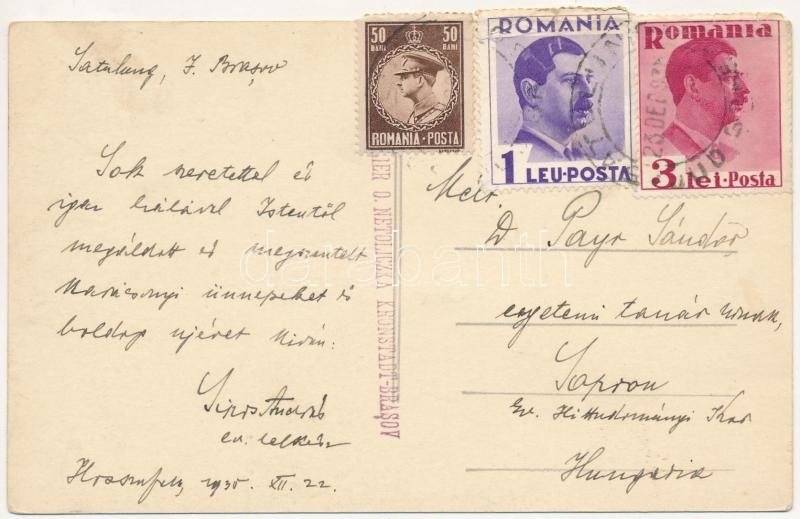 Satulung, J. Brașov
Sok szeretettel és
igaz hálával Istentől
megáldott és megszentelt
karácsonyi ünnepeket és
boldog ujévet kiván:
Sipos András
ev. lelkész
1935. XII. 22.
50 50
BANI BANI
ROMANIA-POSTA
ROMANIA
1 LEU-POSTA
Romania
3 lei-Posta
23 DEC 935
O. NETOLICZKA KRONSTADT-BRAȘOV
darabanth
Mélt.
D Payr Sándor
egyetemi tanár urnak,
Sopron
Ev. Hittudományi Kar
Hungaria